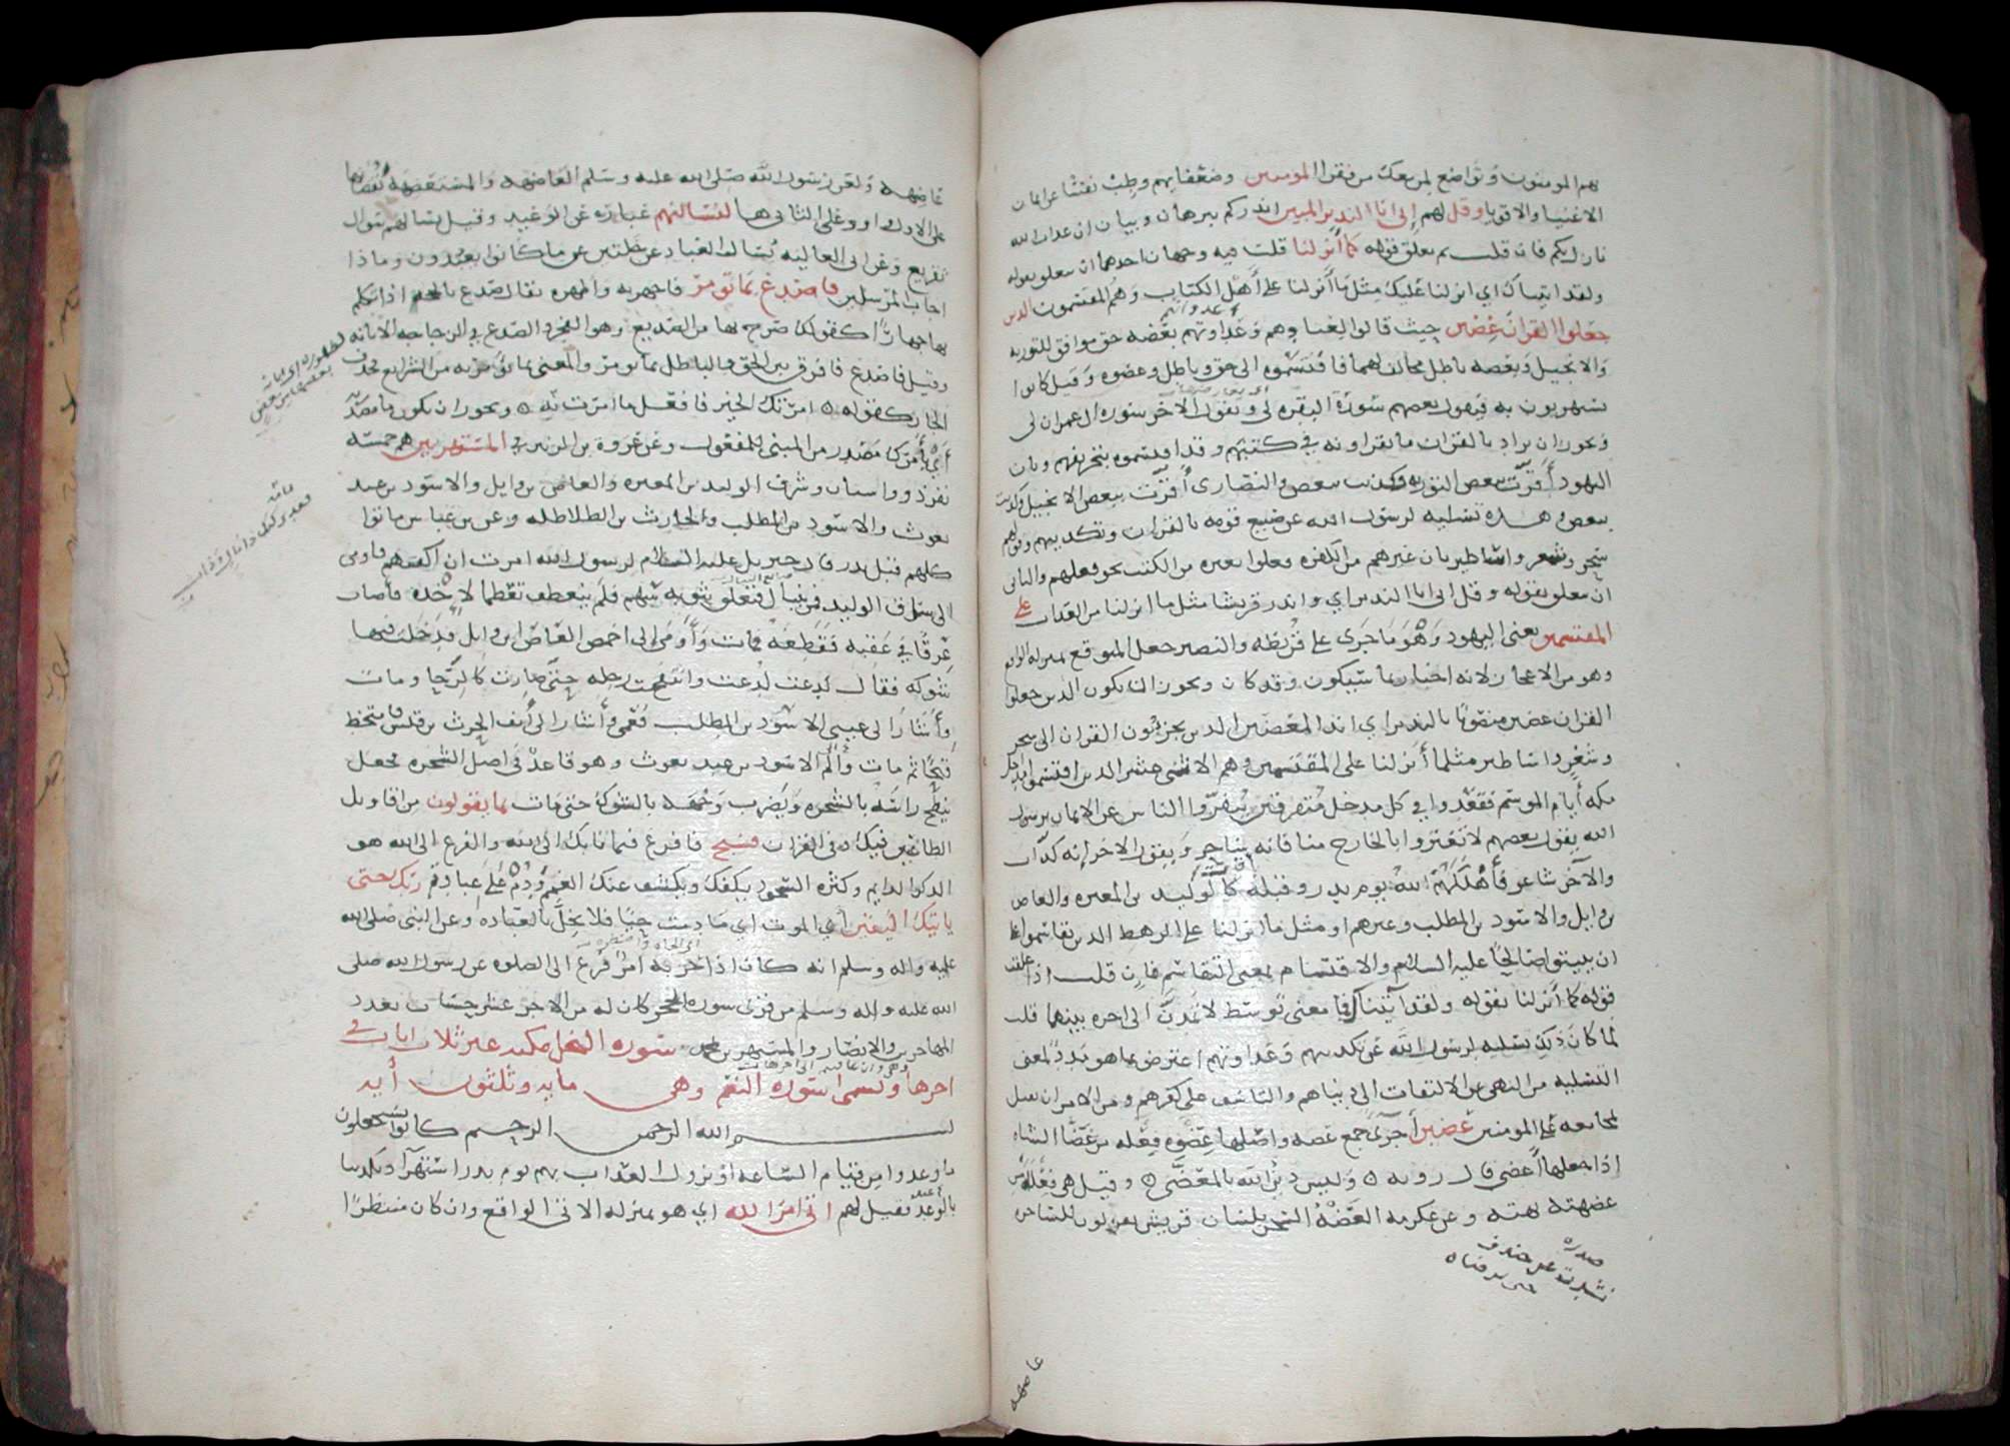 هم المومنون وتواضع لمن معك من فقرا المومنين وضعفايهم وطب نفسا عن ايمان
الاغنيا والاقويا وقل لهم إني انا النذير المبين انذركم ببرهان وبيان ان عذاب الله
نازل بكم فان قلت بم تعلق قوله كما أنزلنا قلت فيه وجهان احدهما ان يتعلق بقوله
ولقد اتيناك اي انزلنا عليك مثل ما أنزلنا على أهل الكتاب وهم المقتسمون الذين
جعلوا القران عضين حيث قالوا بعنادهم وعداوتهم بعضه حق موافق للتورية
والانجيل وبعضه باطل مخالف لهما فاقتسموه الى حق وباطل وعضوه وقيل كانوا
يستهزيون به فيقول بعضهم سورة البقره لي ويقول الآخر سورة ال عمران لي
ويجوز ان يراد بالقران ما يقراونه في كتبهم وقد اقتسموه بتحريفهم وبان
اليهود أقرت ببعض التورية وكذبت ببعض والنصارى أقرت ببعض الانجيل وكذبت
ببعض وهذه تسلية لرسول الله عن صنيع قومه بالقران وتكذيبهم وقولهم
سحر وشعر واساطير بان غيرهم من الكفرة فعلوا بغيره من الكتب نحو فعلهم والثاني
ان يتعلق بقوله وقل اني انا النذير اي وانذر قريشا مثل ما انزلنا من العذاب على
المقتسمين يعني اليهود وهو ما جرى على قريظة والنضير جعل المتوقع بمنزلة الواقع
وهو من الاعجاز لانه اخبار بما سيكون وقد كان ويجوز ان يكون الذين جعلوا
القران عضين منصوبا بالنذير اي انذر المعضين الذين يجزئون القران الى سحر
وشعر واساطير مثلما أنزلنا على المقتسمين وهم الاثنى عشر الذين اقتسموا مداخل
مكه أيام الموسم فقعدوا في كل مدخل متفرقين لينفروا الناس عن الايمان برسول
الله يقول بعضهم لا تغتروا بالخارج منا فانه ساحر ويقول الاخر إنه كذاب
والآخر شاعر فأهلكهم الله يوم بدر وقبله بآفات كالوليد بن المغيره والعاص
بن وايل والاسود بن المطلب وغيرهم او مثل ما انزلنا على الرهط الذين تقاسموا على
ان يبيتوا صالحا عليه السلام والاقتسام بمعنى التقاسم فإن قلت اذا علقت
قوله كما أنزلنا بقوله ولقد آتيناك فما معنى توسط لا تمدن الى اخره بينهما قلت
لما كان ذلك تسليه لرسول الله عن تكذيبهم وعداوتهم اعترض بما هو مدد لمعنى
التسليه من النهي عن الالتفات الى دنياهم والتاسف على كفرهم ومن الامر ان يقبل
بمجامعه على المومنين عضين أجزآ جمع عضه واصلها عضوه فعله من عضى الشاه
اذا جعلها أعضى قال روبه ٥ وليس دين الله بالمعضى ٥ وقيل هي فعله من
عضهته بهته وعن عكرمه العضه السحر بلسان قريش يقولون للساحره
عاضهه
عاضهه ولعن رسول الله صلى الله عليه وسلم العاضهه والمستعضهة نقصانها
على الاول واو وعلى الثاني ها لنسالنهم عبارة عن الوعيد وقيل يسالهم سوال
تقريع وعن ابي العاليه يسال العباد عن خلتين عن ما كانوا يعبدون وماذا
اجابوا المرسلين فاصدع بما تومر فاجهر به وأظهره يقال صدع بالحجة اذا تكلم
بها جهارا كقولك صرح بها من الصديع وهو الفجر والصدع في الزجاجه الابانه
وقيل فاصدع فافرق بين الحق والباطل بما تومر والمعنى بما تومر به من الشرايع فحذف
الجار كقوله ٥ امرتك الخير فافعل ما امرت به ٥ ويجوز ان يكون ما مصدرية
أي بأمرك مصدر من المبني للمفعول وعن عروة بن الزبير في المستهزيين هم خمسة
نفر ذووا اسنان وشرف الوليد بن المغيره والعاص بن وايل والاسود بن عبد
يغوث والاسود بن المطلب والحارث بن الطلاطله وعن بن عباس ماتوا
كلهم قبل بدر قال جبريل عليه السلام لرسول الله امرت ان اكفيكهم فاومى
الى ساق الوليد فمر بنبال فتعلق بثوبه سهم فلم ينعطف تعظما لاخذه فأصاب
عرقا في عقبه فقطعه فمات وأومى إلى اخمص العاص بن وايل فدخلت فيها
شوكه فقال لدغت لدغت وانتفخت رجله حتى صارت كالرحا ومات
وأشار الى عيني الاسود بن المطلب فعمي وأشار الى أنف الحرث بن قيس فامتخط
قيحا ثم مات وإلى الاسود بن عبد يغوث وهو قاعد في اصل الشجره فجعل
ينطح راسه بالشجره ويضرب وجهه بالشوك حتى مات بما يقولون من اقاويل
الطاعنين فيك وفي القران فسبح فافزع فيما نابك الى الله والفزع الى الله هو
الذكر الدايم وكثره السجود يكفك ويكشف عنك الغم ودم على عبادة ربك حتى
ياتيك اليقين اي الموت اي ما دمت حيا فلا تخل بالعباده وعن النبي صلى الله
عليه واله وسلم انه كان اذا حزبه امر فزع الى الصلوه عن رسول الله صلى
الله عليه واله وسلم من قرى سوره الحجر كان له من الاجر عشر حسنات بعدد
المهاجرين والانصار والمستهزيين بمحمد سوره النحل مكيه غير ثلاث ايات في
اخرها وتسمى سوره النعم وهي مايه وثلثون أيه
بسم الله الرحمن الرحيم كانوا يستعجلون
ما وعدوا من قيام الساعه او نزول العذاب بهم يوم بدر استهزآ وتكذيبا
بالوعد فقيل لهم اتى امر الله اي هو بمنزله الاتي الواقع وان كان منتظرا